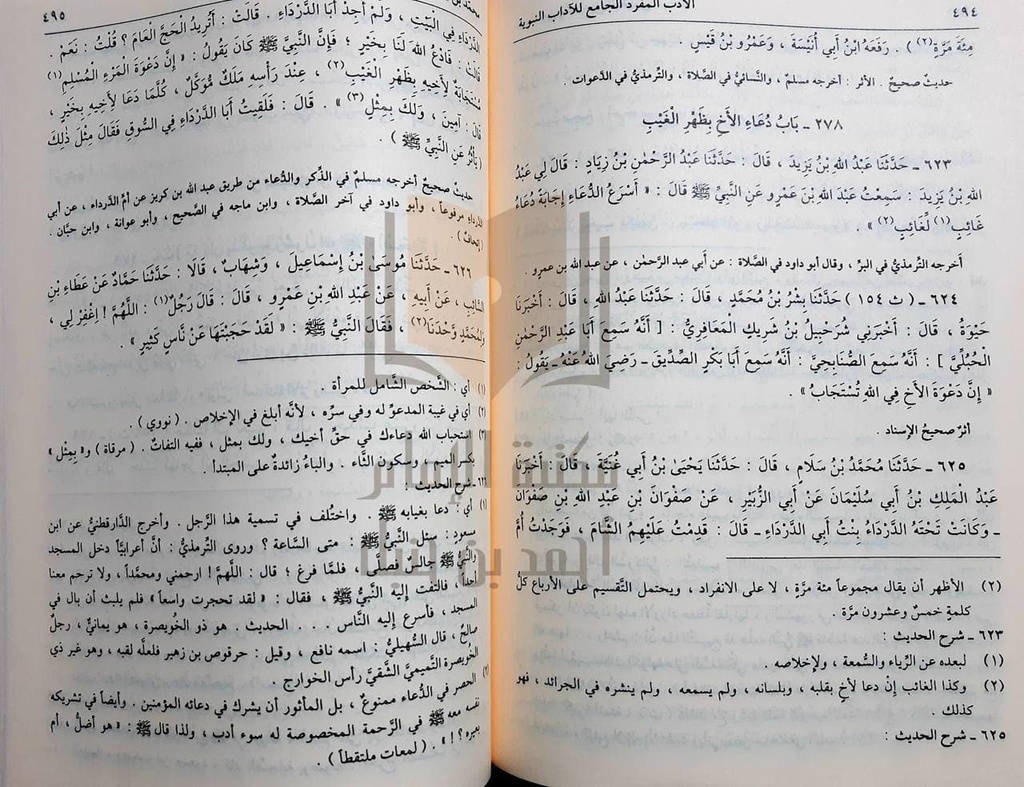 ٤٩٤
الأدب المفرد الجامع للآداب النبوية
مِئَةَ مَرَّةٍ (٢) ) . رَفَعَهُ ابْنُ أَبِي أُنَيْسَةَ ، وَعَمْرُو بْنُ قَيْسٍ .
حديثٌ صحيحٌ . الأثر : أخرجه مسلمٌ ، والنَّسائيُّ في الصَّلاة ، والتِّرمذيُّ في الدَّعوات .
٢٧٨ ـ بَابُ دُعَاءِ الأَخِ بِظَهْرِ الْغَيْبِ
٦٢٣ ـ حَدَّثَنَا عَبْدُ اللهِ بْنُ يَزِيدَ ، قَالَ : حَدَّثَنَا عَبْدُ الرَّحْمٰنِ بْنُ زِيَادٍ : قَالَ لِي عَبْدُ
اللهِ بْنُ يَزِيدَ : سَمِعْتُ عَبْدَ اللهِ بْنَ عَمْرٍو عَنِ النَّبِيِّ ﷺ قَالَ : « أَسْرَعُ الدُّعَاءِ إِجَابَةً دُعَاءُ
غَائِبٍ (١) لِّغَائِبٍ (٢) » .
أخرجه التِّرمذيُّ في البرِّ ، وقال أبو داود في الصَّلاة : عن أبي عبد الرَّحمٰن ، عن عبد الله بن عمرو .
٦٢٤ ـ ( ث ١٥٤ ) حَدَّثَنَا بِشْرُ بْنُ مُحَمَّدٍ ، قَالَ : حَدَّثَنَا عَبْدُ اللهِ ، قَالَ : أَخْبَرَنَا
حَيْوَةُ ، قَالَ : أَخْبَرَنِي شُرَحْبِيلُ بْنُ شَرِيكٍ الْمَعَافِرِيُّ : [ أَنَّهُ سَمِعَ أَبَا عَبْدِ الرَّحْمٰنِ
الْحُبُلِيَّ ] : أَنَّهُ سَمِعَ الصُّنَابِحِيَّ : أَنَّهُ سَمِعَ أَبَا بَكْرٍ الصِّدِّيقَ ـ رَضِيَ اللهُ عَنْهُ ـ يَقُولُ :
« إِنَّ دَعْوَةَ الأَخِ فِي اللهِ تُسْتَجَابُ » .
أثرٌ صحيحُ الإسناد .
٦٢٥ ـ حَدَّثَنَا مُحَمَّدُ بْنُ سَلَامٍ ، قَالَ : حَدَّثَنَا يَحْيَىٰ بْنُ أَبِي غُنَيَّةَ ، قَالَ : أَخْبَرَنَا
عَبْدُ الْمَلِكِ بْنُ أَبِي سُلَيْمَانَ عَنْ أَبِي الزُّبَيْرِ ، عَنْ صَفْوَانَ بْنِ عَبْدِ اللهِ بْنِ صَفْوَانَ
ـ وَكَانَتْ تَحْتَهُ الدَّرْدَاءُ بِنْتُ أَبِي الدَّرْدَاءِ ـ قَالَ : قَدِمْتُ عَلَيْهِمُ الشَّامَ ، فَوَجَدْتُ أُمَّ
(٢) الأظهر أن يقال مجموعاً مئة مرَّةٍ ، لا على الانفراد ، ويحتمل التَّقسيم على الأرباع كلُّ
كلمةٍ خمسٌ وعشرون مرَّة .
٦٢٣ ـ شرح الحديث :
(١) لبعده عن الرِّياء والسُّمعة ، ولإخلاصه .
(٢) وكذا الغائب إن دعا لأخٍ بقلبه ، وبلسانه ، ولم يسمعه ، ولم ينشره في الجرائد ، فهو
كذلك .
٦٢٥ ـ شرح الحديث :
٤٩٥
الدَّرْدَاءِ فِي الْبَيْتِ ، وَلَمْ أَجِدْ أَبَا الدَّرْدَاءِ . قَالَتْ : أَتُرِيدُ الْحَجَّ الْعَامَ ؟ قُلْتُ : نَعَمْ .
قَالَتْ : فَادْعُ اللهَ لَنَا بِخَيْرٍ ؛ فَإِنَّ النَّبِيَّ ﷺ كَانَ يَقُولُ : « إِنَّ دَعْوَةَ الْمَرْءِ الْمُسْلِمِ (١)
مُسْتَجَابَةٌ لِأَخِيهِ بِظَهْرِ الْغَيْبِ (٢) ، عِنْدَ رَأْسِهِ مَلَكٌ مُوَكَّلٌ ، كُلَّمَا دَعَا لِأَخِيهِ بِخَيْرٍ ،
قَالَ : آمِينَ ، وَلَكَ بِمِثْلٍ (٣) » . قَالَ : فَلَقِيتُ أَبَا الدَّرْدَاءِ فِي السُّوقِ فَقَالَ مِثْلَ ذٰلِكَ
( يَأْثُرُ عَنِ النَّبِيِّ ﷺ ) .
حديثٌ صحيحٌ أخرجه مسلمٌ في الذِّكر والدُّعاء من طريق عبد الله بن كريز عن أمِّ الدَّرداء ، عن أبي
الدَّرداء مرفوعاً ، وأبو داود في آخر الصَّلاة ، وابن ماجه في الصَّحيح ، وأبو عوانة ، وابن حبَّان .
( إتحاف ) .
٦٢٦ ـ حَدَّثَنَا مُوسَىٰ بْنُ إِسْمَاعِيلَ ، وَشِهَابٌ ، قَالَا : حَدَّثَنَا حَمَّادٌ عَنْ عَطَاءِ بْنِ
السَّائِبِ ، عَنْ أَبِيهِ ، عَنْ عَبْدِ اللهِ بْنِ عَمْرٍو ، قَالَ : قَالَ رَجُلٌ (١) : اللَّهُمَّ ! اغْفِرْ لِي ،
وَلِمُحَمَّدٍ وَحْدَنَا (٢) ، فَقَالَ النَّبِيُّ ﷺ : « لَقَدْ حَجَبْتَهَا عَنْ نَّاسٍ كَثِيرٍ » .
(١) أي : الشَّخص الشَّامل للمرأة .
(٢) أي في غيبة المدعوِّ له وفي سرِّه ، لأنَّه أبلغ في الإخلاص . ( نووي ) .
(٣) استجاب الله دعاءك في حقِّ أخيك ، ولك بمثل ، ففيه التفات . ( مرقاة ) و« بِمِثْل »
بكسر الميم ، وسكون الثَّاء . والباءُ زائدةٌ على المبتدأ .
ـ شرح الحديث :
(١) أي : دعا بغيابه ﷺ . واختُلف في تسمية هذا الرَّجل . وأخرج الدَّارقطنيُّ عن ابن
سعودٍ : سئل النَّبيُّ ﷺ : متى السَّاعة ؟ وروى التِّرمذيُّ : أنَّ أعرابيّاً دخل المسجد
والنَّبيُّ ﷺ جالسٌ فصلَّى ، فلمَّا فرغ ؛ قال : اللَّهمَّ ! ارحمني ومحمَّداً ، ولا ترحم معنا
أحداً ، فالتفت إليه النَّبيُّ ﷺ ، فقال : « لقد تحجرت واسعاً » فلم يلبث أن بال في
المسجد ، فأسرع إليه النَّاس . . . الحديث . هو ذو الخويصرة ، هو يمانيٌّ ، رجلٌ
صالحٌ ، قال السُّهيليُّ : اسمه نافع ، وقيل : حرقوص بن زهير فلعلَّه لقبه ، وهو غير ذي
الخُويصرة التَّميميِّ الشَّقيِّ رأس الخوارج .
(٢) الحصر في الدُّعاء ممنوعٌ ، بل المأثور أن يشرك في دعائه المؤمنين . وأيضاً في تشريكه
نفسه معه ﷺ في الرَّحمة المخصوصة له سوء أدب ، ولذا قال ﷺ : « هو أضلُّ ، أم
بعيره ؟! » . ( لمعات ملتقطاً ) .
مكتبة الإمام
أحمد بن حنبل